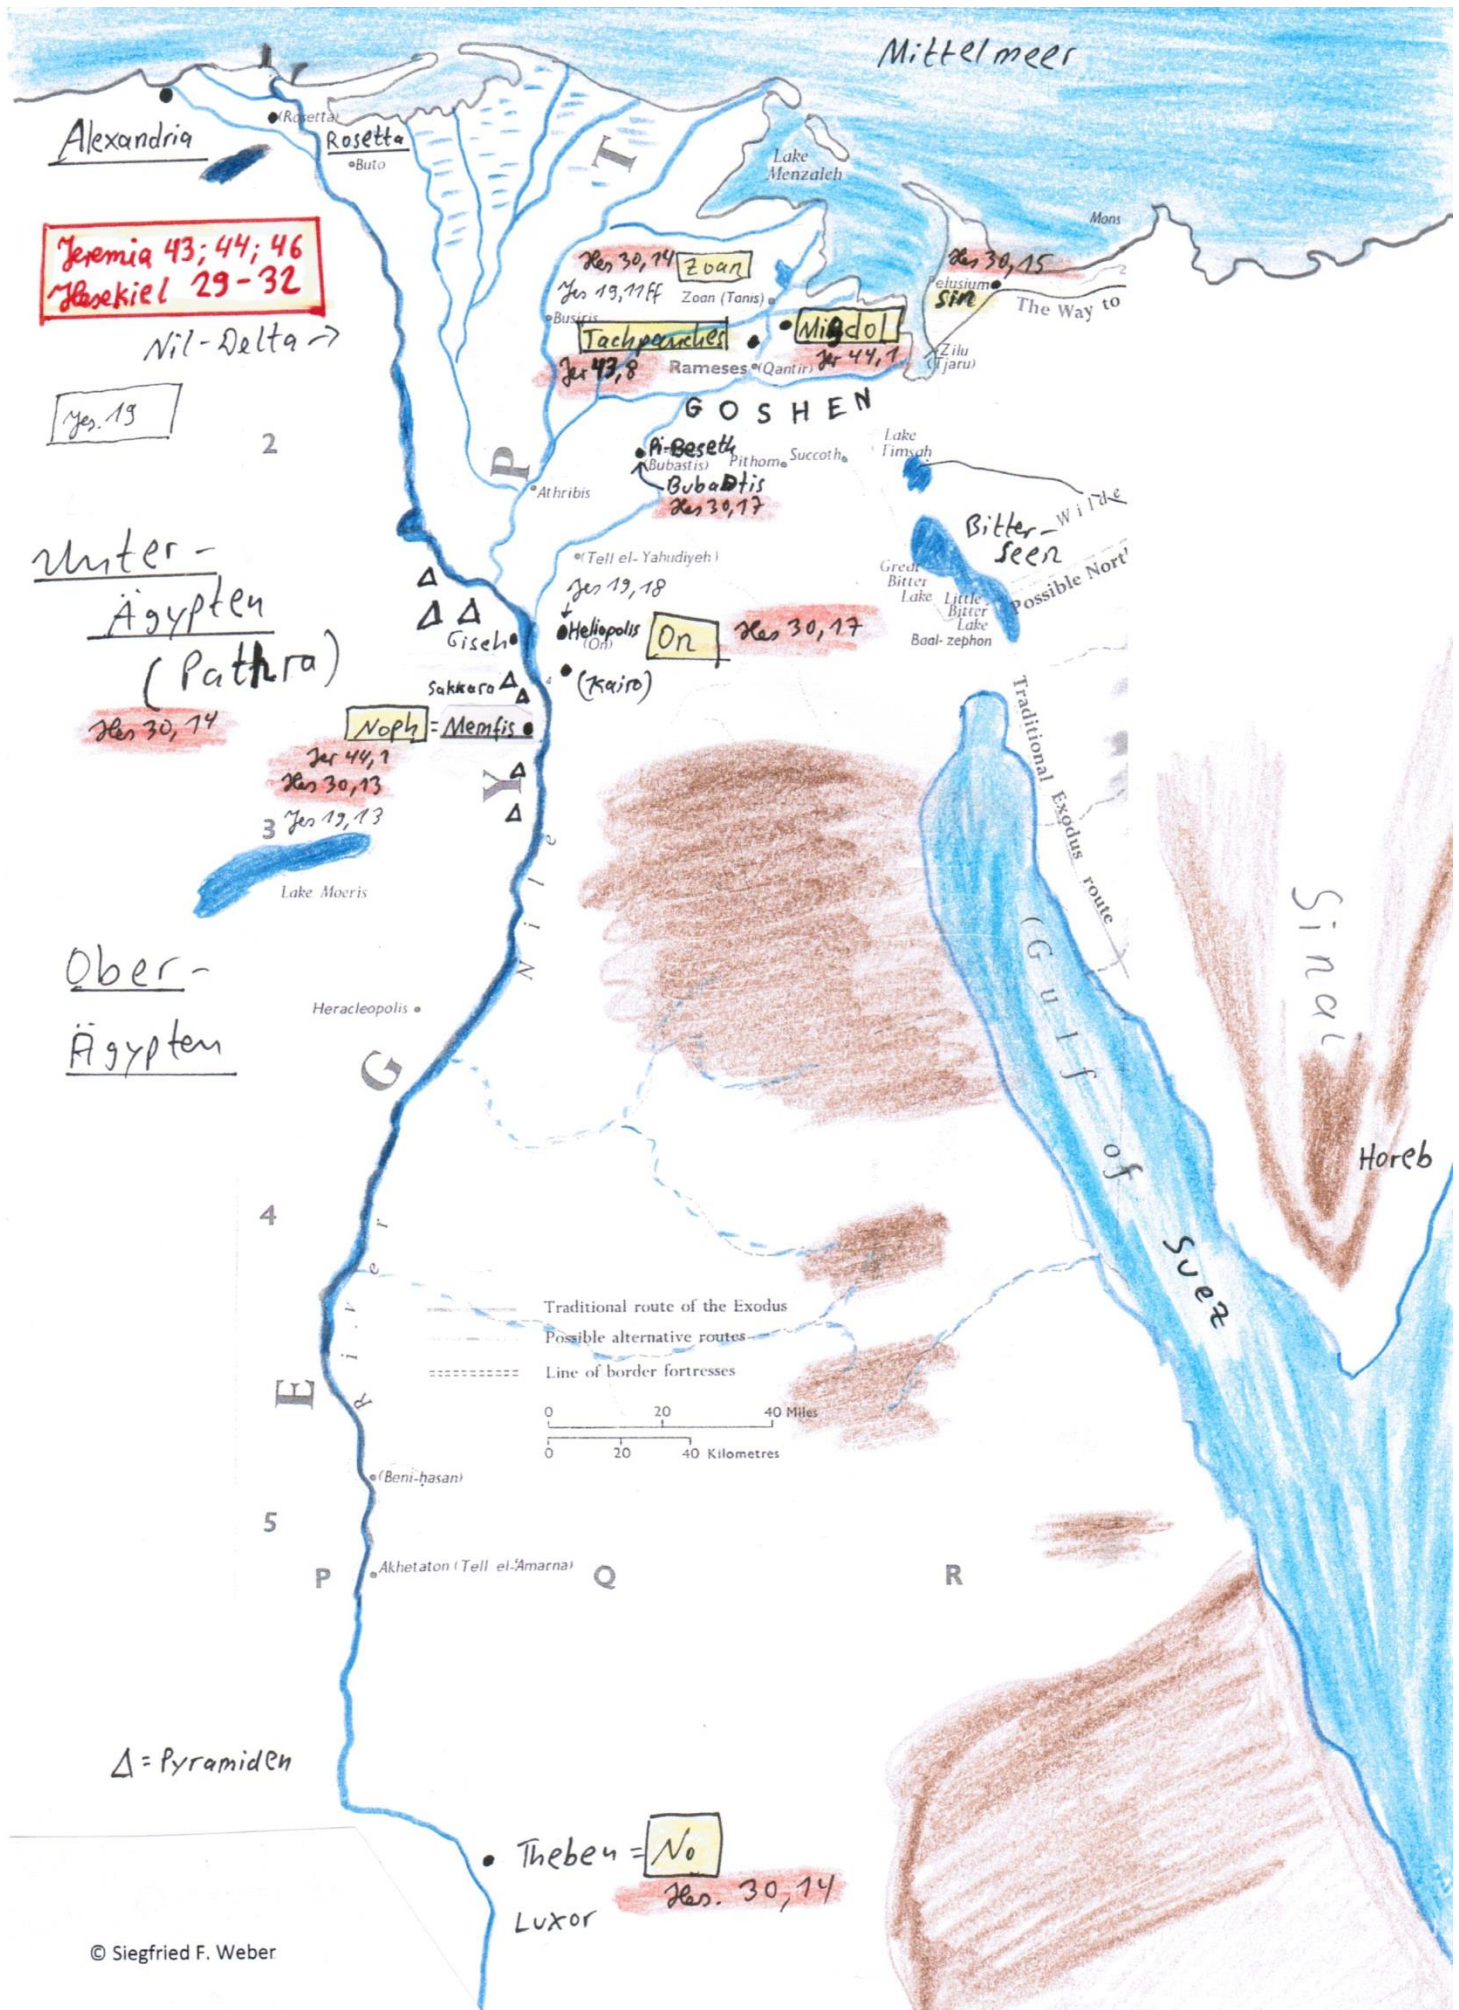 Mittelmeer
Alexandria
(Rosetta)
Rosetta
Buto
T
Lake
Menzaleh
Mons
Jeremia 43; 44; 46
Hesekiel 29-32
Nil-Delta →
Jes. 19
Hes 30,14
Zoan
Jes 19,11ff
Zoan (Tanis)
Hes 30,15
Pelusium
Sin
The Way to
Busiris
Tachpanches
Migdol
Jer 43,8
Rameses
(Qantir)
Jer 44,1
Zilu
(Tjaru)
GOSHEN
2
P
Pi-Beseth
(Bubastis)
Pithom
Succoth
Lake
Timsah
Bubastis
Hes 30,17
Athribis
Bitter-
Seen
Wilde
Unter-
Ägypten
(Pathra)
Hes 30,14
(Tell el-Yahudiyeh)
Jes 19,18
Great
Bitter
Lake
Little
Bitter
Lake
Possible Nort
Baal-zephon
Giseh
Heliopolis
(On)
On
Hes 30,17
Sakkara
(Kairo)
Noph = Memfis
Jer 44,1
Hes 30,13
Jes 19,13
3
Y
Traditional Exodus route
Lake Moeris
Nile
Sinai
Ober-
Ägypten
Heracleopolis
G
(Gulf of
Suez
Horeb
4
River
Traditional route of the Exodus
Possible alternative routes
Line of border fortresses
E
0 20 40 Miles
0 20 40 Kilometres
(Beni-ḥasan)
5
Akhetaton (Tell el-'Amarna)
P
Q
R
Δ = Pyramiden
Theben = No
Hes. 30,14
Luxor
© Siegfried F. Weber